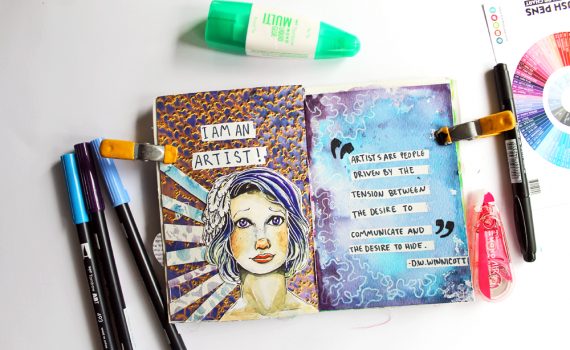 MULTI
I AM AN
ARTIST!
"ARTISTS ARE PEOPLE
DRIVEN BY THE
TENSION BETWEEN
THE DESIRE TO
COMMUNICATE AND
THE DESIRE TO HIDE."
-D.W. WINNICOTT
SH PENS